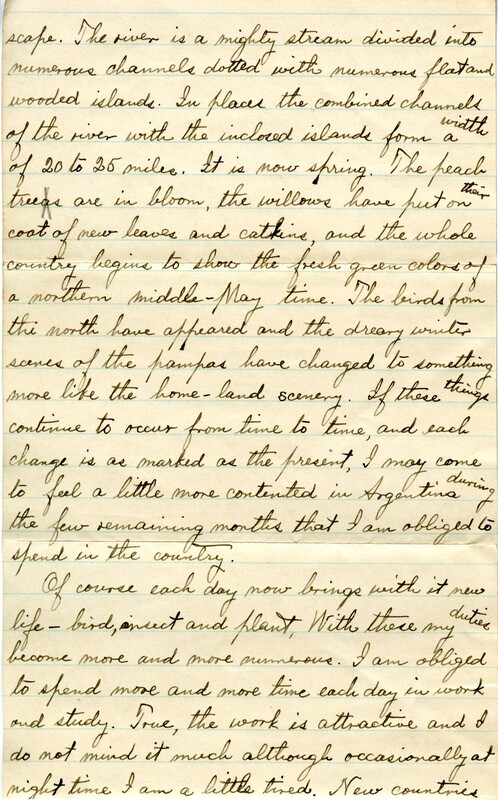 scape. The river is a mighty stream divided into
numerous channels dotted with numerous flat and
wooded islands. In places the combined channels
of the river with the inclosed islands form a width
of 20 to 25 miles. It is now spring. The peach
trees are in bloom, the willows have put on their
coat of new leaves and catkins, and the whole
country begins to show the fresh green colors of
a northern middle-May time. The birds from
thi north have appeared and the dreary winter
scenes of the pampas have changed to something
more like the home-land scenery. If these things
continue to occur from time to time, and each
change is as marked as the present, I may come
to feel a little more contented in Argentina during
the few remaining months that I am obliged to
spend in the country.
Of course each day now brings with it new
life - bird, insect and plant. With these my duties
become more and more numerous. I am obliged
to spend more and more time each day in work
and study. True, the work is attractive and I
do not mind it much although occasionally at
night time I am a little tired. New countries